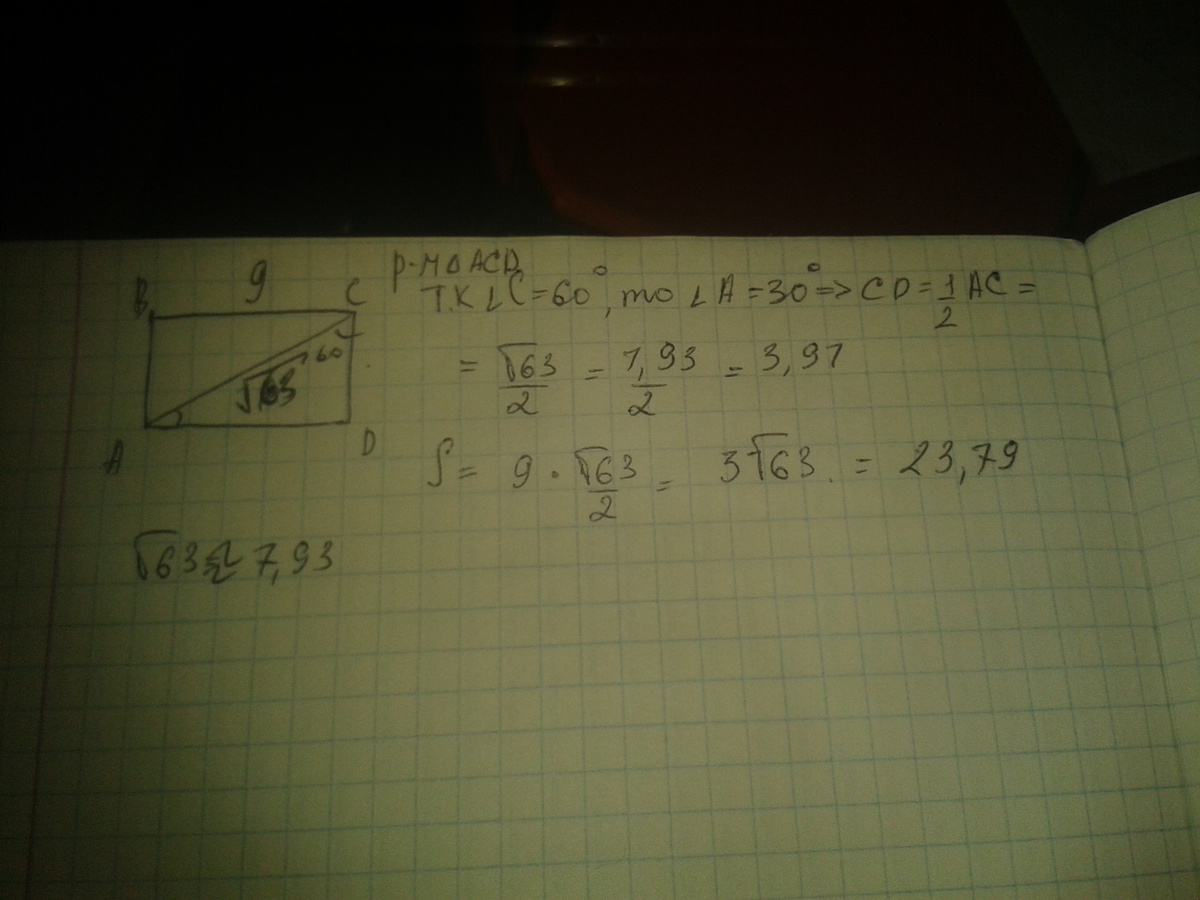 9
B C
60
√63
A D
р-м △ ACD
Т.к ∠C = 60°, то ∠A = 30° => CD = 1/2 AC =
= √63/2 = 7,93/2 = 3,97
S = 9 · √63/2 = 3√63 = 23,79
√63 ≈ 7,93